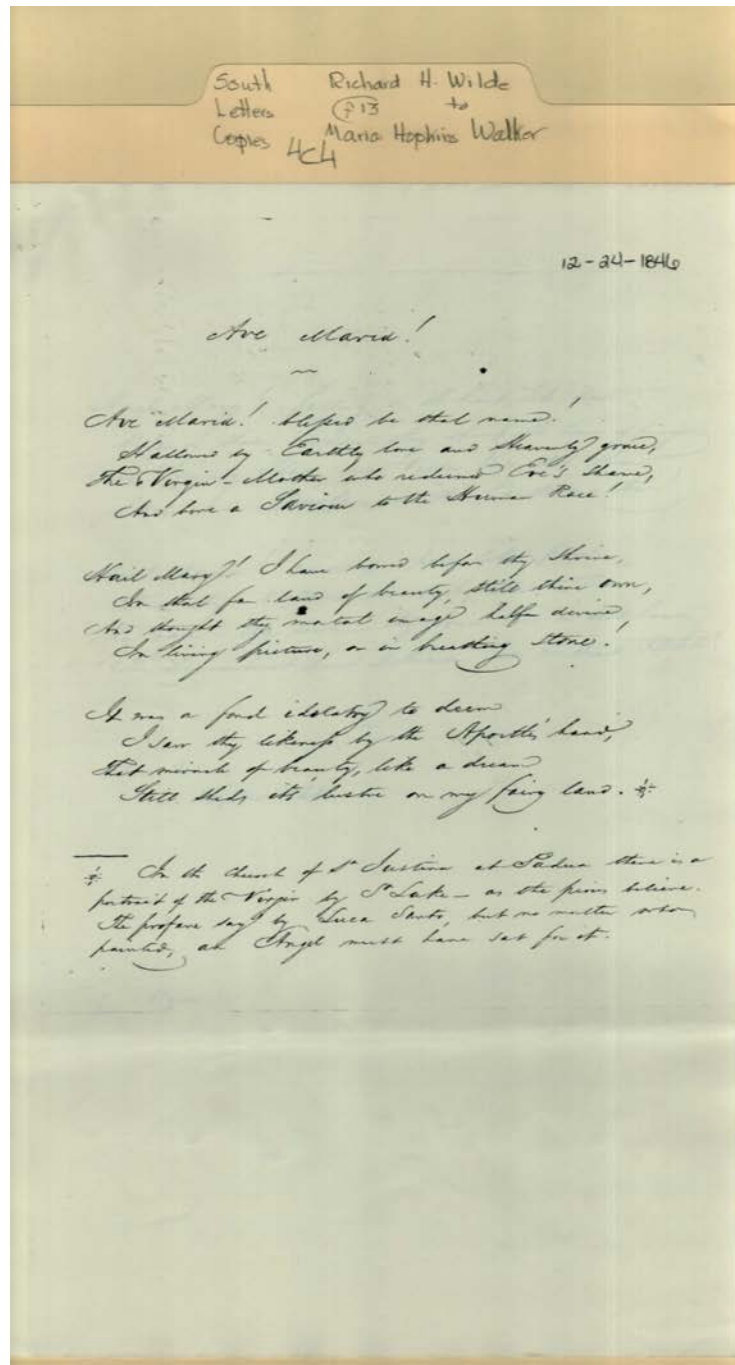 South Richard H. Wilde
Letters F13 to
Copies Maria Hopkins Walker
4C4
12-24-1846
Ave Maria!
Ave Maria! blessed be that name!
Hallowed by Earthly love and Heavenly grace,
The Virgin-Mother who redeemed Eve's shame,
And bore a Saviour to the Human Race!
Hail Mary! I have bowed before thy shrine,
In that far land of beauty, still thine own,
And thought thy mortal image half divine
In living picture, or in breathing stone!
It was a fond idolatry to deem
I saw thy likeness by the Apostle's hand,
That miracle of beauty, like a dream
Still sheds its lustre on my fairy land. ⁜
⁜ In the church of St Justina at Padua there is a
portrait of the Virgin by St Luke – as the pious believe.
The profane say by Luca Santo, but no matter who
painted, an Angel must have sat for it.